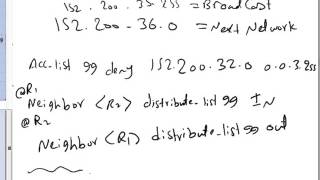 152.200.35.255 = BroadCast
152.200-36.0 = Next Network
Acc-list 99 deny 152.200.32.0 0.0.3.255
@R1
Neighbor <R2> distribute-list 99 IN
@R2
Neighbor <R1> distribute-list 99 out